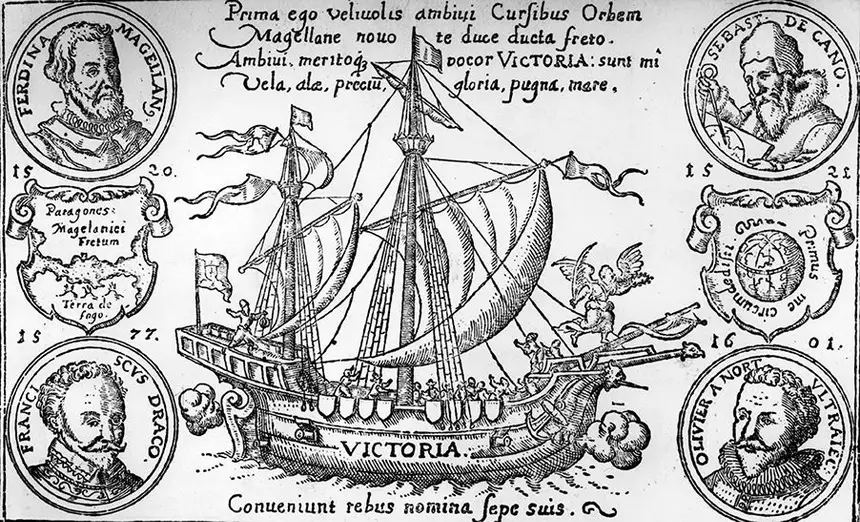 Prima ego velivolis ambivi Cursibus Orbem
Magellane novo te duce ducta freto.
Ambivi, meritoq3 vocor VICTORIA: sunt mî
Vela, alæ, preciū, gloria, pugna, mare.
FERDINA MAGELLAN.
SEBAST. DE CANO.
15 20.
15 21.
Paragones:
Magelanici
Fretum
Terra de
fogo.
Primus me circumdedisti
15 77.
16 01.
FRANCI SCVS DRACO.
OLIVIER A NORT VLTRAIECT
VICTORIA.
Conveniunt rebus nomina sepe suis.